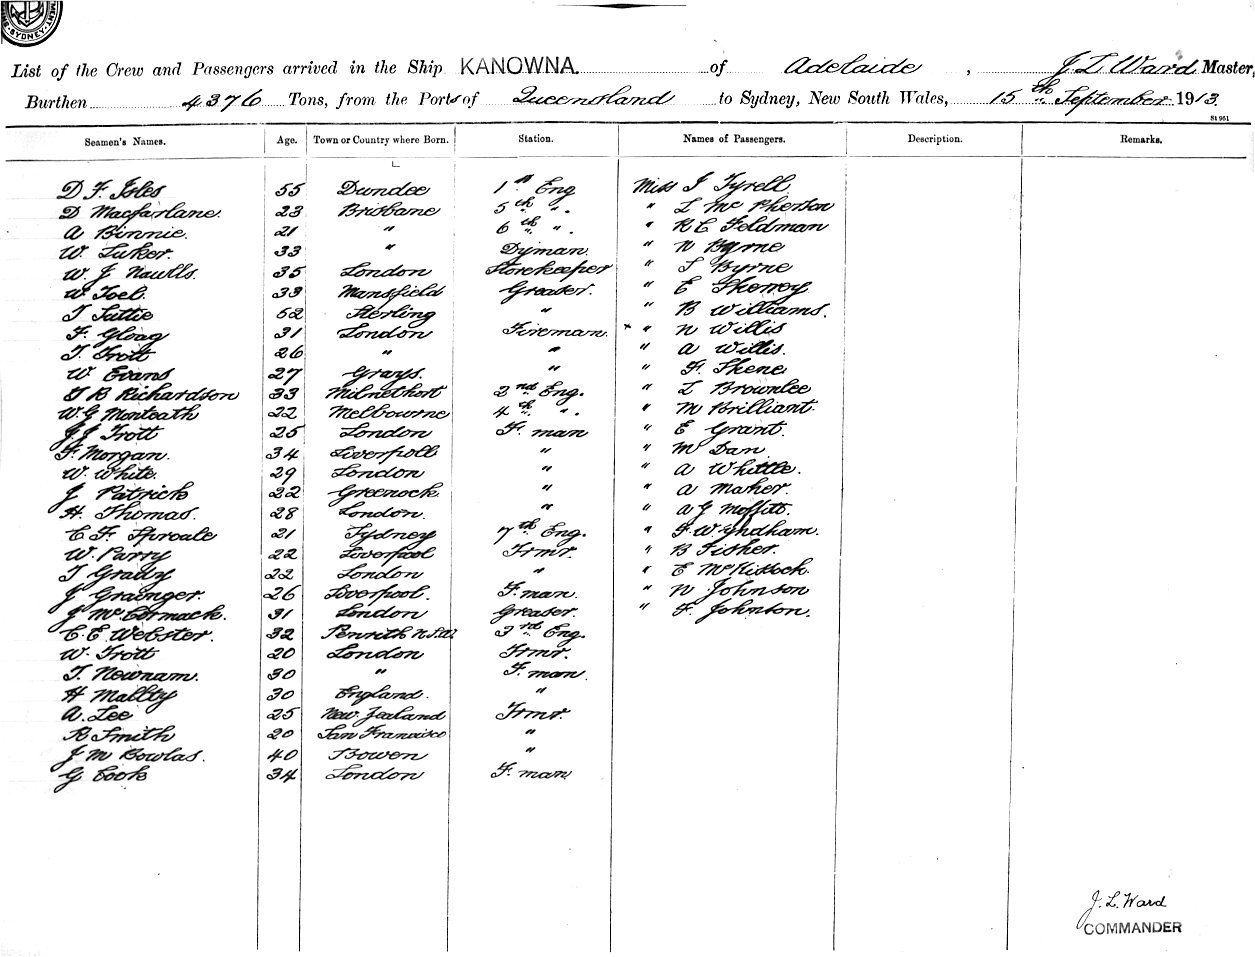 SYDNEY
List of the Crew and Passengers arrived in the Ship KANOWNA. of Adelaide, J L Ward Master,
Burthen 4376 Tons, from the Ports of Queensland to Sydney, New South Wales, 15th September 1913.
81951
Seamen's Names. Age. Town or Country where Born. Station. Names of Passengers. Description. Remarks.
D F Isles 55 Dundee 1st Eng Miss J Tyrell
D Macfarlane. 23 Brisbane 5th ". " L McPherson
A Binnie. 21 " 6th ". " R C Feldman
W. Luker. 33 " Dyman. " N Byrne
W. J Nawlls. 35 London Storekeeper " J Byrne
W. Toel. 33 Mansfield Greaser. " E
T Tattie 52 Sterling " " B Williams.
F. Gloag 31 London Fireman. × " N Willis
T. Trott 26 " " " A Willis.
W Evans 27 Grays. " " F. Skene
G B Richardson 33 Milnethort 2nd Eng. " L Brownlee
W. G Monteath 22 Melbourne 4th ". " M Brilliant.
J J Trott 25 London F. man " E Grant.
F. Morgan. 34 Liverpoll " " M Dan
W. White. 29 London " " A Whittle.
J Patrick 22 Greenock. " " A Maher.
H. Thomas. 28 London. " " A G Moffitt.
C F. Sproale 21 Sydney 7th Eng. " F. Wyndham.
W. Parry 22 Liverpool Frmr. " B Fisher.
T Grady 22 London " " E McKissock.
J Grainger. 26 Liverpool. F. man. " N Johnson
J McCormack. 31 London Greaser. " F. Johnton.
C. E. Webster. 32 Penrith N.S.W. 3rd Eng.
W. Trott 20 London Frmr.
T. Newnam. 30 " F. man.
H Mallty 30 England. "
A. Lee 25 New. Zealand Frmr.
R Smith 20 San Francisco "
J M Bowlas. 40 Bowen "
G Cook 34 London F. man
J. L. Ward
COMMANDER